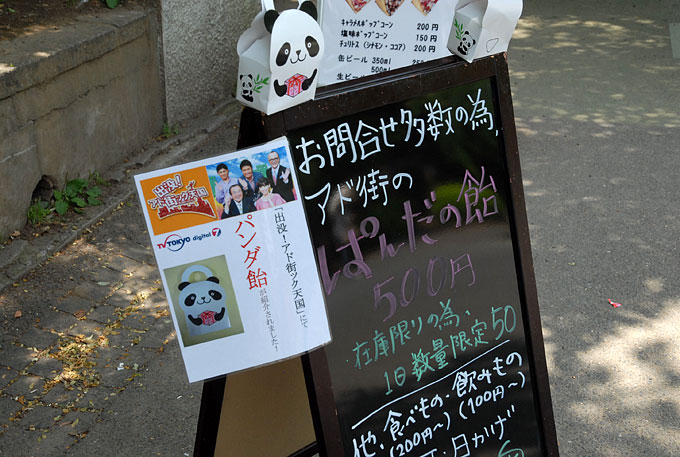 キャラメルポップコーン 200円
塩味ポップコーン 150円
チュリトス (シナモン・ココア) 200円
缶ビール 350ml
500ml
生ビール
お問合せ多数の為、
アド街の
ぱんだの飴
500円
在庫限りの為、
1日数量限定50
他、食べもの・飲みもの
(200円〜) (100円〜)
日かげ
出没!
アド街ック天国
TV TOKYO digital 7
「出没!アド街ック天国」にて
パンダ飴
が紹介されました!